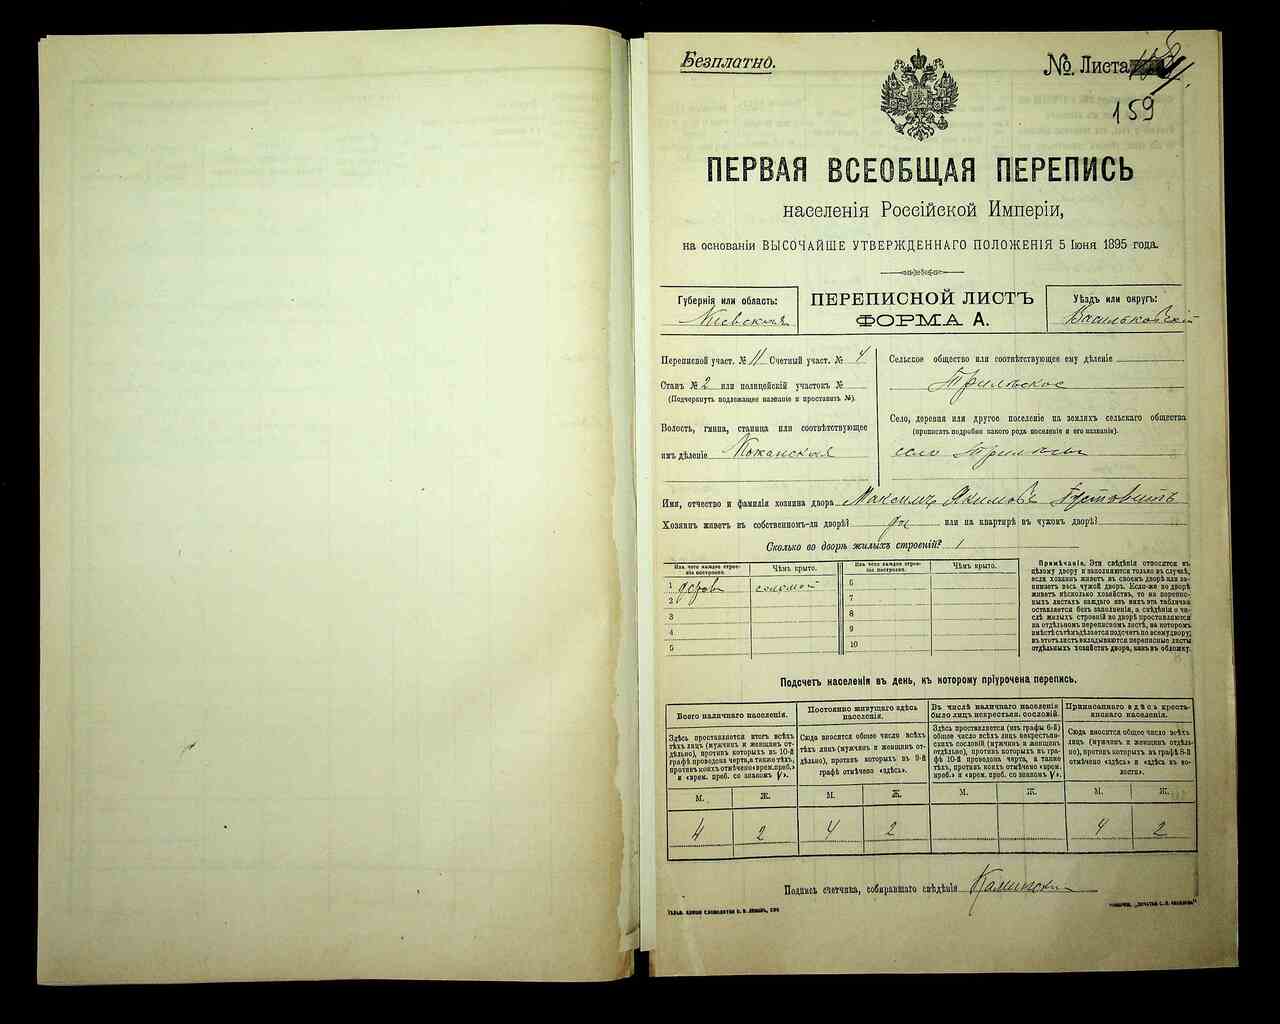 Безплатно.
№. Листа
159
ПЕРВАЯ ВСЕОБЩАЯ ПЕРЕПИСЬ
населенія Россійской Имперіи,
на основаніи ВЫСОЧАЙШЕ УТВЕРЖДЕННАГО ПОЛОЖЕНІЯ 5 Іюня 1895 года.
Губернія или область:
Кіевская
ПЕРЕПИСНОЙ ЛИСТЪ
ФОРМА А.
Уѣздъ или округъ:
Васильковскій
Переписной участ. № 11 Счетный участ. № 4
Станъ № 2 или полицейскій участокъ №
(Подчеркнуть подлежащее названіе и проставить №).
Волость, гмина, станица или соотвѣтствующее
имъ дѣленіе Кожанская
Сельское общество или соотвѣтствующее ему дѣленіе
Трилѣское
Село, деревня или другое поселеніе на земляхъ сельскаго общества
(прописать подробно какого рода поселеніе и его названіе).
село Трилѣсы
Имя, отчество и фамилія хозяина двора Максимъ Якимовъ Пустовитъ
Хозяинъ живетъ въ собственномъ-ли дворѣ? да или на квартирѣ въ чужомъ дворѣ?
Сколько во дворѣ жилыхъ строеній? 1
Изъ чего каждое строеніе построено. Чѣмъ крыто. Изъ чего каждое строеніе построено. Чѣмъ крыто.
1 дерева соломой 6
2 7
3 8
4 9
5 10
Примѣчаніе. Эти свѣдѣнія относятся къ
цѣлому двору и заполняются только въ случаѣ,
если хозяинъ живетъ въ своемъ дворѣ или занимаетъ
весь чужой дворъ. Если-же во дворѣ
живетъ нѣсколько хозяйствъ, то на переписныхъ
листахъ каждаго изъ нихъ эта табличка
оставляется безъ заполненія, а свѣдѣнія о числѣ
жилыхъ строеній во дворѣ проставляются
на отдѣльномъ переписномъ листѣ, на которомъ
вмѣстѣ съ тѣмъ дѣлается подсчетъ по всему двору;
въ этотъ листъ вкладываются переписные листы
отдѣльныхъ хозяйствъ двора, какъ въ обложку.
Подсчетъ населенія въ день, къ которому пріурочена перепись.
Всего наличнаго населенія.
Здѣсь проставляется итогъ всѣхъ
тѣхъ лицъ (мужчинъ и женщинъ отдѣльно),
противъ которыхъ въ 10-й
графѣ проведена черта, а также тѣхъ,
противъ коихъ отмѣчено «врем. преб.»
и «врем. преб. со знакомъ V».
Постоянно живущаго здѣсь
населенія.
Сюда вносится общее число всѣхъ
тѣхъ лицъ (мужчинъ и женщинъ отдѣльно),
противъ которыхъ въ 9-й
графѣ отмѣчено «здѣсь».
Въ числѣ наличнаго населенія
было лицъ некрестьян. сословій.
Здѣсь проставляется (изъ графы 6-й)
общее число всѣхъ лицъ некрестьянскихъ
сословій (мужчинъ и женщинъ
отдѣльно), противъ которыхъ въ графѣ
10 проведена черта, а также
тѣхъ, противъ коихъ отмѣчено «врем.
преб.» и «врем. преб. со знакомъ V».
Приписаннаго здѣсь крестьянскаго
населенія.
Сюда вносится общее число всѣхъ
лицъ (мужчинъ и женщинъ отдѣльно),
противъ которыхъ въ графѣ 8-й
отмѣчено «здѣсь» и «здѣсь въ волости».
М. Ж. М. Ж. М. Ж. М. Ж.
4 2 4 2 4 2
Подпись счетчика, собиравшаго свѣдѣнія Каминскій